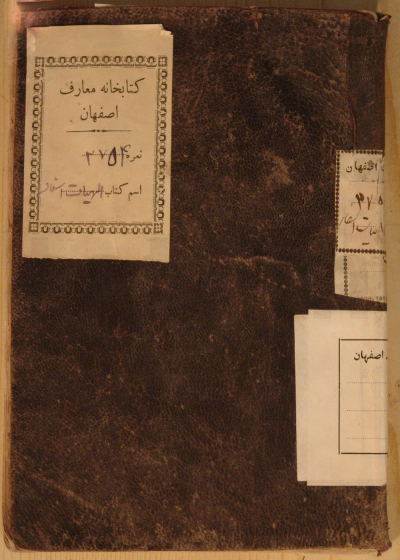 کتابخانه معارف
اصفهان
نمره ۲۷۵۴
اسم کتاب الهیات اسفار
اصفهان
۲۷۵
اصفهان